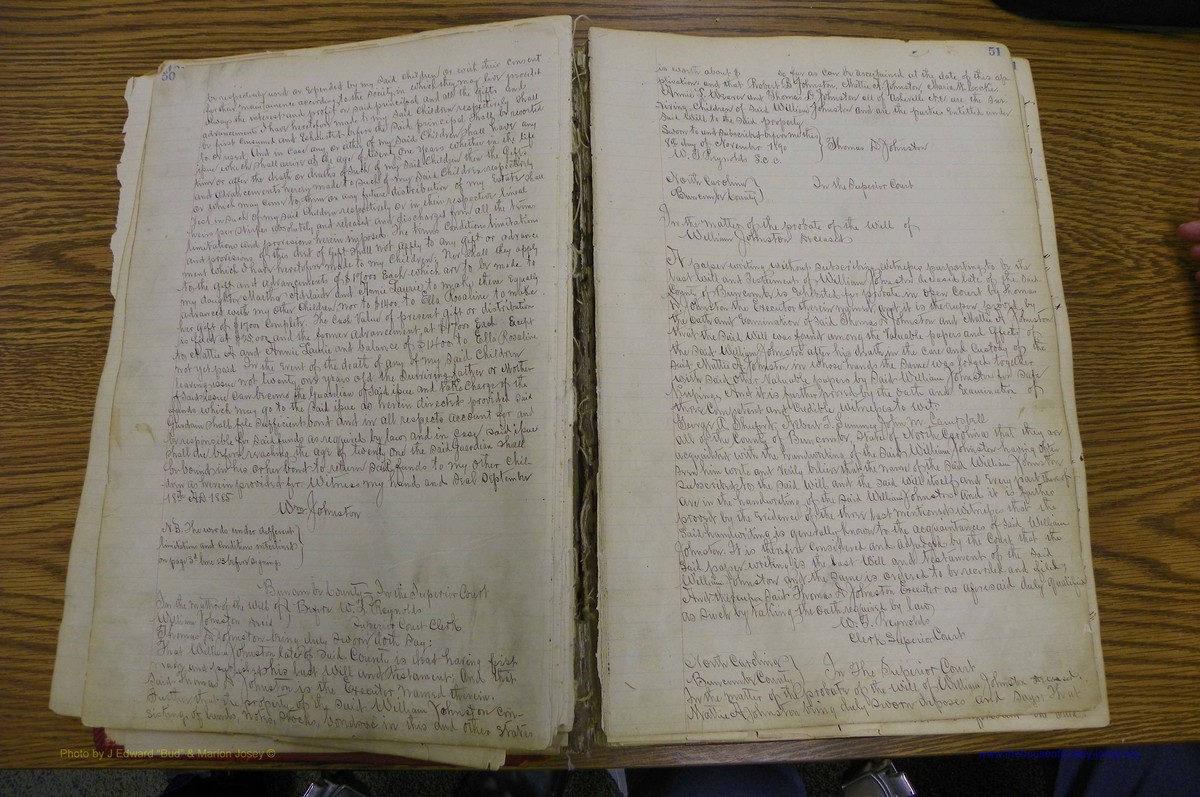 50
be judiciously used or expended by my said children or with their consent
for their maintenance according to the Society in which they may live provided
always the interest and profit or said principal and all the gifts and
advancements I have heretofore made to my said Children respectively shall
be first consumed and Exhausted before the said principal shall be resorted
to or used. And in case any or either of my said Children shall have any
issue who shall arrive at the age of twenty one years whether in the life
time or after the death or deaths of such of my said Children then the gifts
and advancements hereby made to such of my said Children respectively
or which may come to them or any future distribution of my Estate shall
vest in such of my said Children respectively or in their respective lineal
heirs per stirpes absolutely and released and discharged from all the terms
limitations and provisions herein imposed. The terms Conditions limitations
and provisions of this deed of Gift shall not apply to any gift or advance
ment which I have heretofore made to my Children. Nor shall they apply
to the gift and advancement of $17,000 Each which are to be made to
my daughter Marther Adelaide and Annie Laurie, to make them Equally
advanced with my other Children, nor to $1400 to Ella Rosaline to make
her gift of $17,000 Complete. The Cash Value of present gift or distribution
is fixed at $25,000 and the former advancement at $17000 Each Except
to Mattie A and Annie Laurie and balance of $1400 to Ella Rosaline
not yet paid. In the Event of the death of any of my said Children
leaving issue not twenty one years old the surviving father or Mother
of said issue can become the guardian of said issue and take Charge of the
funds which may go to the said issue as herein directed provided said
Guardian shall file sufficient bond and in all respects account for and
be responsible for said funds as required by law. and in case said issue
shall die before reaching the age of twenty one the said Guardian shall
be bound in his or her bond to return said funds to my other Chil-
dren as herein provided for Witness my hand and Seal September
18th AD 1885
Wm Johnston
N.B. The words under different
limitation and conditions interlined
on page 3d line 23 before signing
Buncombe County - In the Superior Court
In the matter of the will of } Before W. T. Reynolds
William Johnston decd } Superior Court Clerk
Thomas D Johnston being duly sworn doth Say:
That William Johnston late of said County is dead having first
made and published his last Will and testament; And that
said Thomas D. Johnston is the Executor named therein.
Further that the property of the said William Johnston con-
sisting of lands, notes, Stocks, bonds &c in this and other States
51
is worth about $ so far as can be ascertained at the date of this ap-
plication and that Robert B. Johnston, Mattie A Johnston, Maria M.
Annie L. Weaver and Thomas D. Johnston all of Asheville etc. are the sur-
viving Children of said William Johnston and are the parties Entitled under
said Will to the said property.
Sworn to and subscribed before me this } Thomas D Johnston
8th day of November 1890
W. T. Reynolds S.C.C.
North Carolina } In the Superior Court
Buncombe County }
In the matter of the probate of the will of
William Johnston Deceased
A paper writing without subscribing witnesses purporting to be the
last Will and Testament of William Johnston deceased late of the said
County of Buncombe is Exhibited for probate in open Court by Thomas
D Johnston the Executor therein named and it is thereupon proved by
the oath and Examination of said Thomas D Johnston and Mattie A Johnston
that the said Will was found among the Valuable papers and Effects of
the said William Johnston after his death in the care and Custody of the
said Mattie A Johnston in whose hands the same was lodged together
with said other Valuable papers by said William Johnston for Safe
Keeping. And it is further proved by the oath and Examination of
three Competent and Credible Witnesses to wit:
George A. Shuford, John M. Campbell
all of the County of Buncombe, State of North Carolina that they are
acquainted with the handwriting of the said William Johnston having often
seen him write and verily believe that the name of the said William Johnston
subscribed to the said Will and the said Will itself and every part thereof
are in the handwriting of the said William Johnston And it is further
proved by the Evidence of the three last mentioned witnesses that the
said handwriting is generally known to the acquaintances of said William
Johnston. It is therefore Considered and adjudged by the Court that the
said paper writing is the last Will and Testament of the said
William Johnston and the same is ordered to be recorded and filed;
And thereupon said Thomas D Johnston Executor as aforesaid duly qualifies
as such by taking the oath required by law.
W. T. Reynolds
Clerk Superior Court
North Carolina } In The Superior Court
Buncombe County }
In the matter of the probate of the will of William Johnston deceased.
Mattie A Johnston being duly sworn deposes and Says: That
Photo by J Edward "Bud" & Marion Josey ©